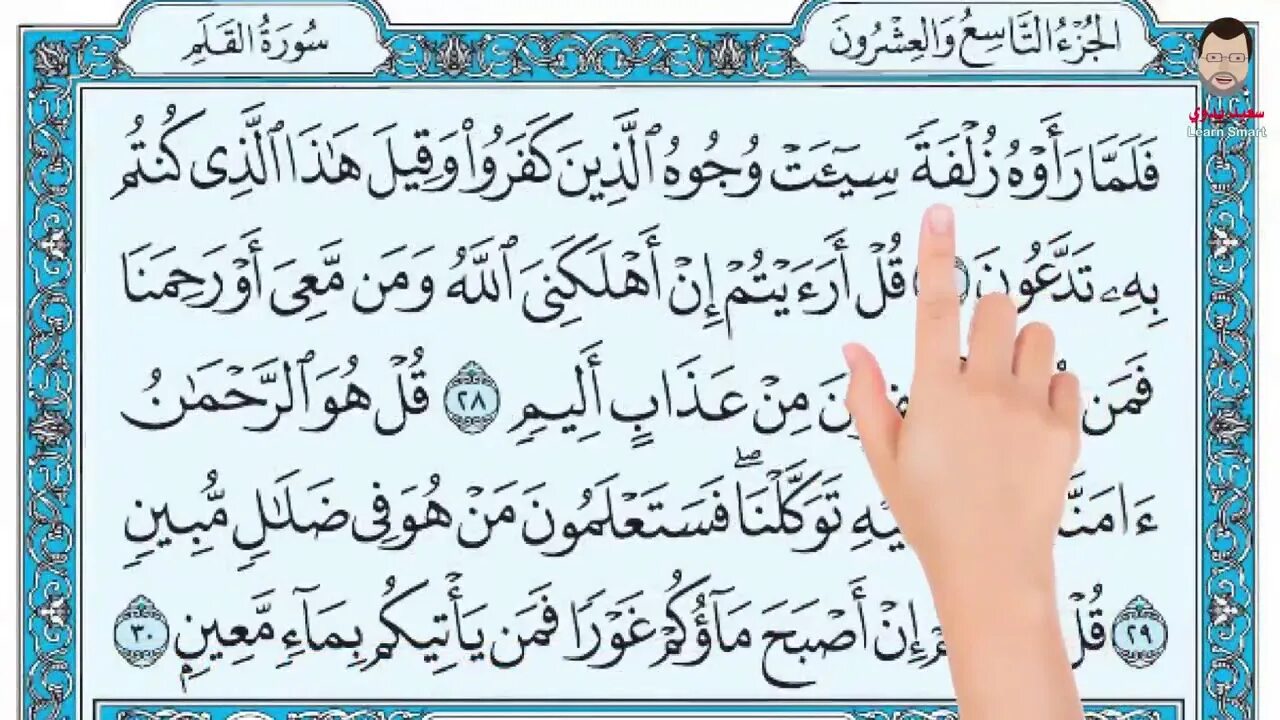 الجُزْءُ التَّاسِعُ وَالعِشْرُونَ
سُورَةُ القَلَمِ
سعيد بدوي
Learn Smart
فَلَمَّا رَأَوْهُ زُلْفَةً سِيٓـَٔتْ وُجُوهُ ٱلَّذِينَ كَفَرُوا۟ وَقِيلَ هَٰذَا ٱلَّذِى كُنتُم
بِهِۦ تَدَّعُونَ قُلْ أَرَءَيْتُمْ إِنْ أَهْلَكَنِىَ ٱللَّهُ وَمَن مَّعِىَ أَوْ رَحِمَنَا
فَمَن مِنْ عَذَابٍ أَلِيمٍ ٢٨ قُلْ هُوَ ٱلرَّحْمَٰنُ
تَوَكَّلْنَا ۖ فَسَتَعْلَمُونَ مَنْ هُوَ فِى ضَلَٰلٍ مُّبِينٍ
٢٩ قُلْ إِنْ أَصْبَحَ مَآؤُكُمْ غَوْرًا فَمَن يَأْتِيكُم بِمَآءٍ مَّعِينٍۭ ٣٠